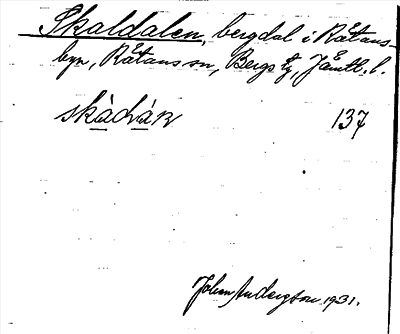 Skaldalen, bergdal i Råtans-
byn, Råtans sn, Bergs tg, Jämtl. l.
skàdáṛ 137
Johan Andersson 1931.